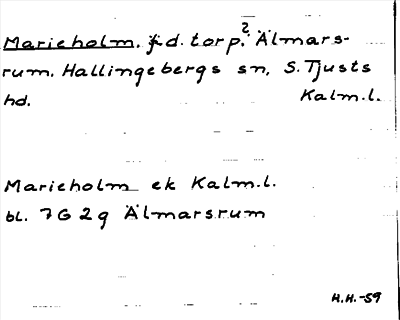 Marieholm, f.d. torp?, Älmars-
rum, Hallingebergs sn, S. Tjusts
hd. Kalm.l.
Marieholm ek Kalm.l.
bl. 7G 2g Älmarsrum
H.H.-59